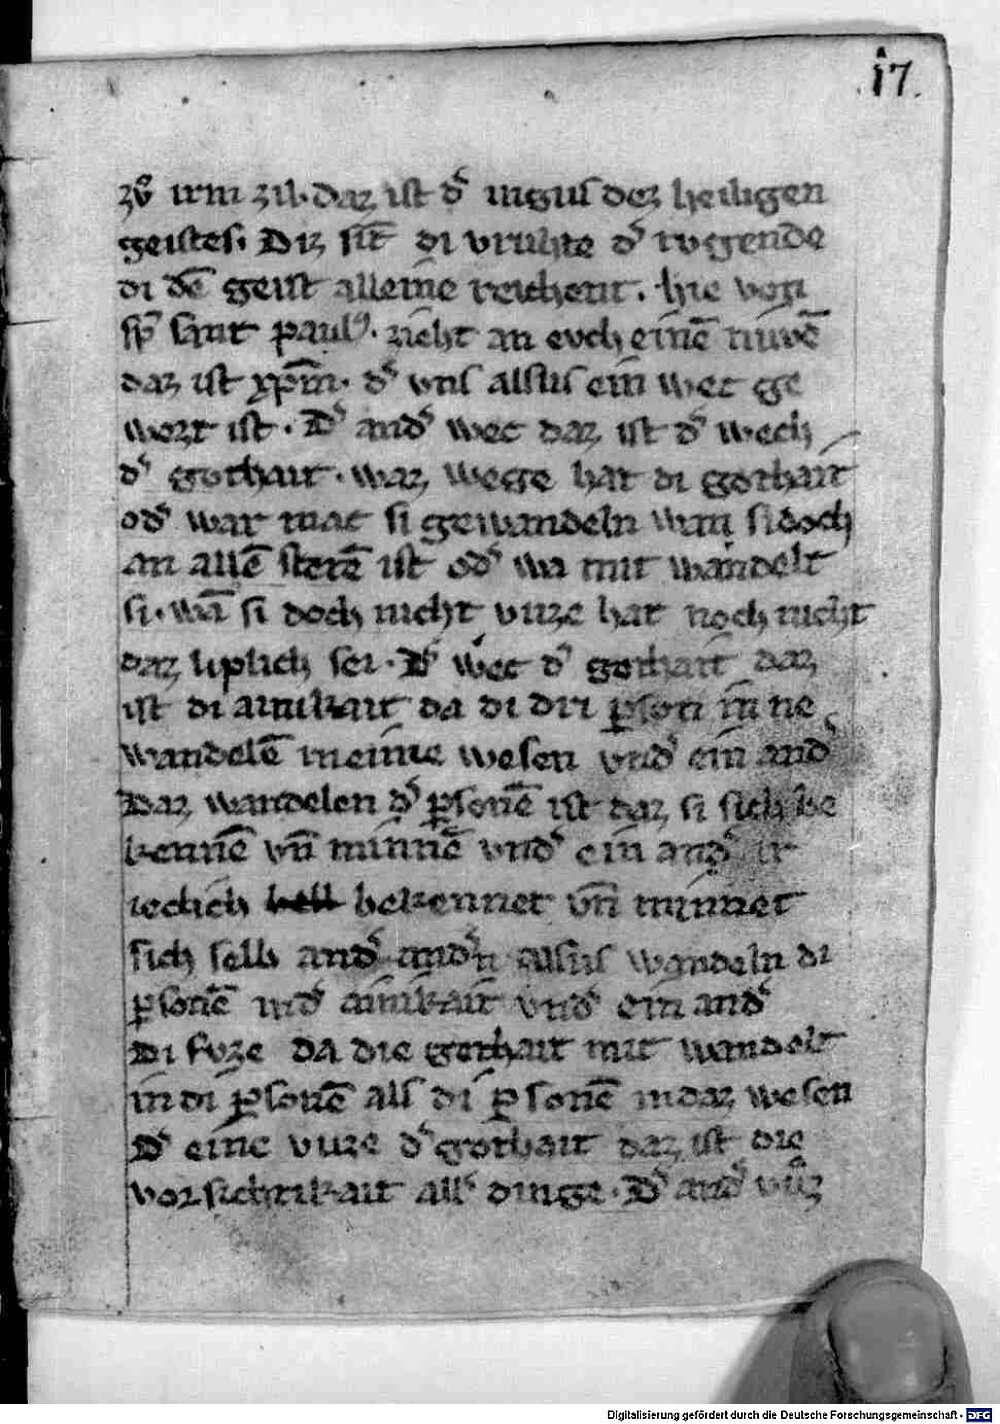 17.
zů irm zil. daz ist d᾽ inguſ dez heiligen
geistes. Diz ſīt di vruhte d᾽ tvgende
di dē geist alleine reichent. hie von
ſp͛ ſant paulꝰ. zieht an evch einē nuwē
daz ist xp̄m. d᾽ vnſ alſus ein wec ge
wort ist. D᾽ and᾽ wec daz ist d᾽ wech
d᾽ gothait. waz wege hat di gothait
od᾽ war mac ſi gewandeln wan ſi doch
an allē ſtetē ist od᾽ wa mit wandelt
ſi. wā ſi doch nicht vuze hat noch nicht
daz liplich ſei. D᾽ wec d᾽ gothait daz
ist di ainikait da di dri ꝑſon in ne
wandelē in eime weſen vnd᾽ ein and᾽
Daz wandelen d᾽ ꝑſonē ist daz ſi ſich be
kennē vn̄ minnē vnd᾽ ein and᾽ ir
ieclich bekennet vn̄ minnet
ſich ſelb and᾽ and᾽n alſus wandeln di
ꝑſonē ainikait vnd᾽ ein and᾽
Di fvze da die gothait mit wandelt
in di ꝑſonē alſ di ꝑſonē in daz weſen
D᾽ eine vuze d᾽ gothait daz ist die
vorſichtikait all᾽ dinge. D᾽ and᾽ vůz
Digitalisierung gefördert durch die Deutsche Forschungsgemeinschaft - DFG